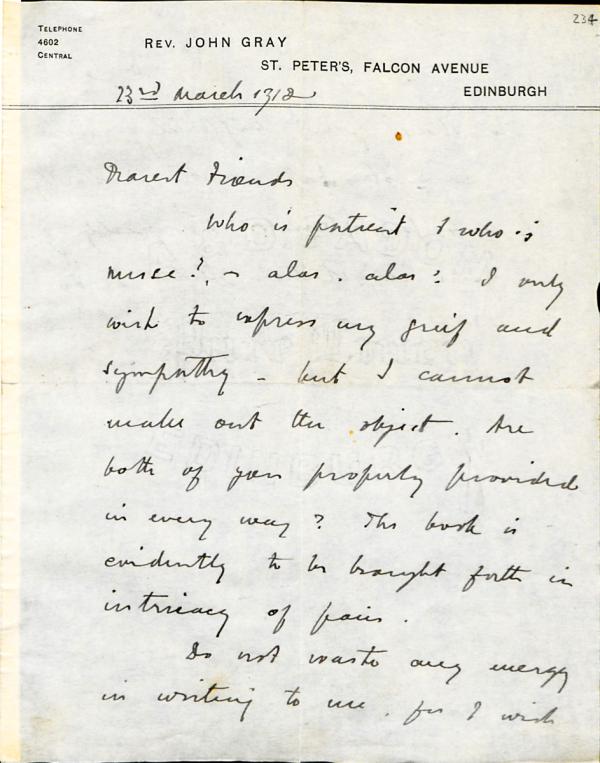 234
TELEPHONE
4602
CENTRAL
REV. JOHN GRAY
ST. PETER'S, FALCON AVENUE
EDINBURGH
23rd March 1912
Dearest Friends
Who is patient & who is
nurse? - alas. alas! I only
wish to express my grief and
sympathy - but I cannot
make out the object. Are
both of you properly provided
in every way? The book is
evidently to be brought forth in
intricacy of pain.
Do not waste any energy
in writing to me. for I wish